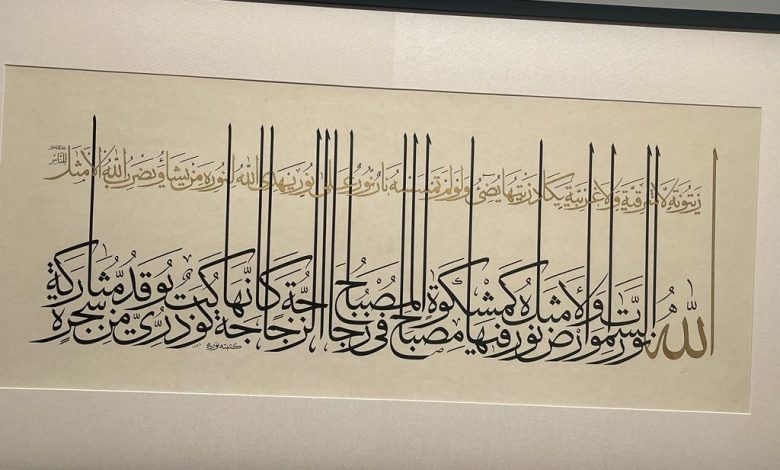 الله نور السموات والأرض مثل نوره كمشكوة فيها مصباح المصباح في زجاجة الزجاجة كأنها كوكب دري يوقد من شجرة مباركة
زيتونة لا شرقية ولا غربية يكاد زيتها يضئ ولو لم تمسسه نار نور على نور يهدي الله لنوره من يشاء ويضرب الله الأمثال
للناس
كتبته نوريه